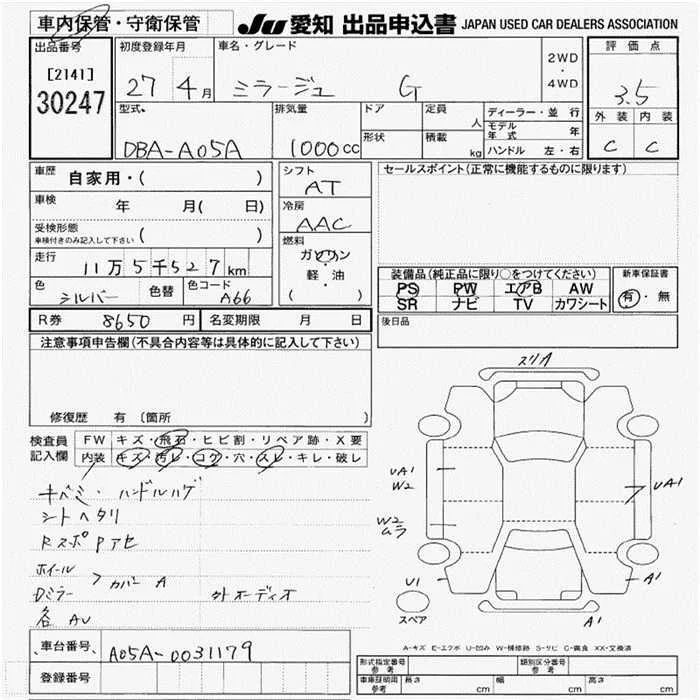 車内保管・守衛保管
JU 愛知 出品申込書 JAPAN USED CAR DEALERS ASSOCIATION
出品番号
[2141]
30247
初度登録年月
27 4月
車名・グレード
ミラージュ G
2WD
・
4WD
評価点
3.5
外装 内装
C C
型式
DBA-A05A
排気量
1000cc
ドア
形状
定員
人
積載
kg
ディーラー・並行
モデル年式 年
ハンドル 左・右
車歴 自家用・( )
車検 年 月( 日)
受検形態
車検付きのみ記入して下さい ( )
走行 11万5千527km
色 シルバー 色替 色コード A66
シフト
AT
冷房
AAC
燃料
ガソリン
軽・油
( )
セールスポイント(正常に機能するものに限ります)
装備品(純正品に限り○をつけてください)
PS PW エアB AW
SR ナビ TV カワシート
新車保証書
有・無
R券 8650円 名変期限 月 日
後日品
注意事項申告欄(不具合内容等は具体的に記入して下さい)
修復歴 有 〔箇所 〕
検査員記入欄
FW キズ・飛石・ヒビ割・リペア跡・X要
内装 キズ・汚レ・コゲ・穴・スレ・キレ・破レ
ハンドルハゲ
シートヘタリ
ホイール カバー A
Dミラー 外オーディオ
各AU
スリA
UA1
W2
W2
ムラ
U1
UA1
A1
A1
スペア
A-キズ E-エクボ U-凹み W-補修跡 S-サビ C-腐食 XX-交換済
車台番号 A05A-0031179
登録番号
型式指定番号
参考
類別区分番号
参考
車庫証明用
参考
長さ cm 幅 cm 高さ cm